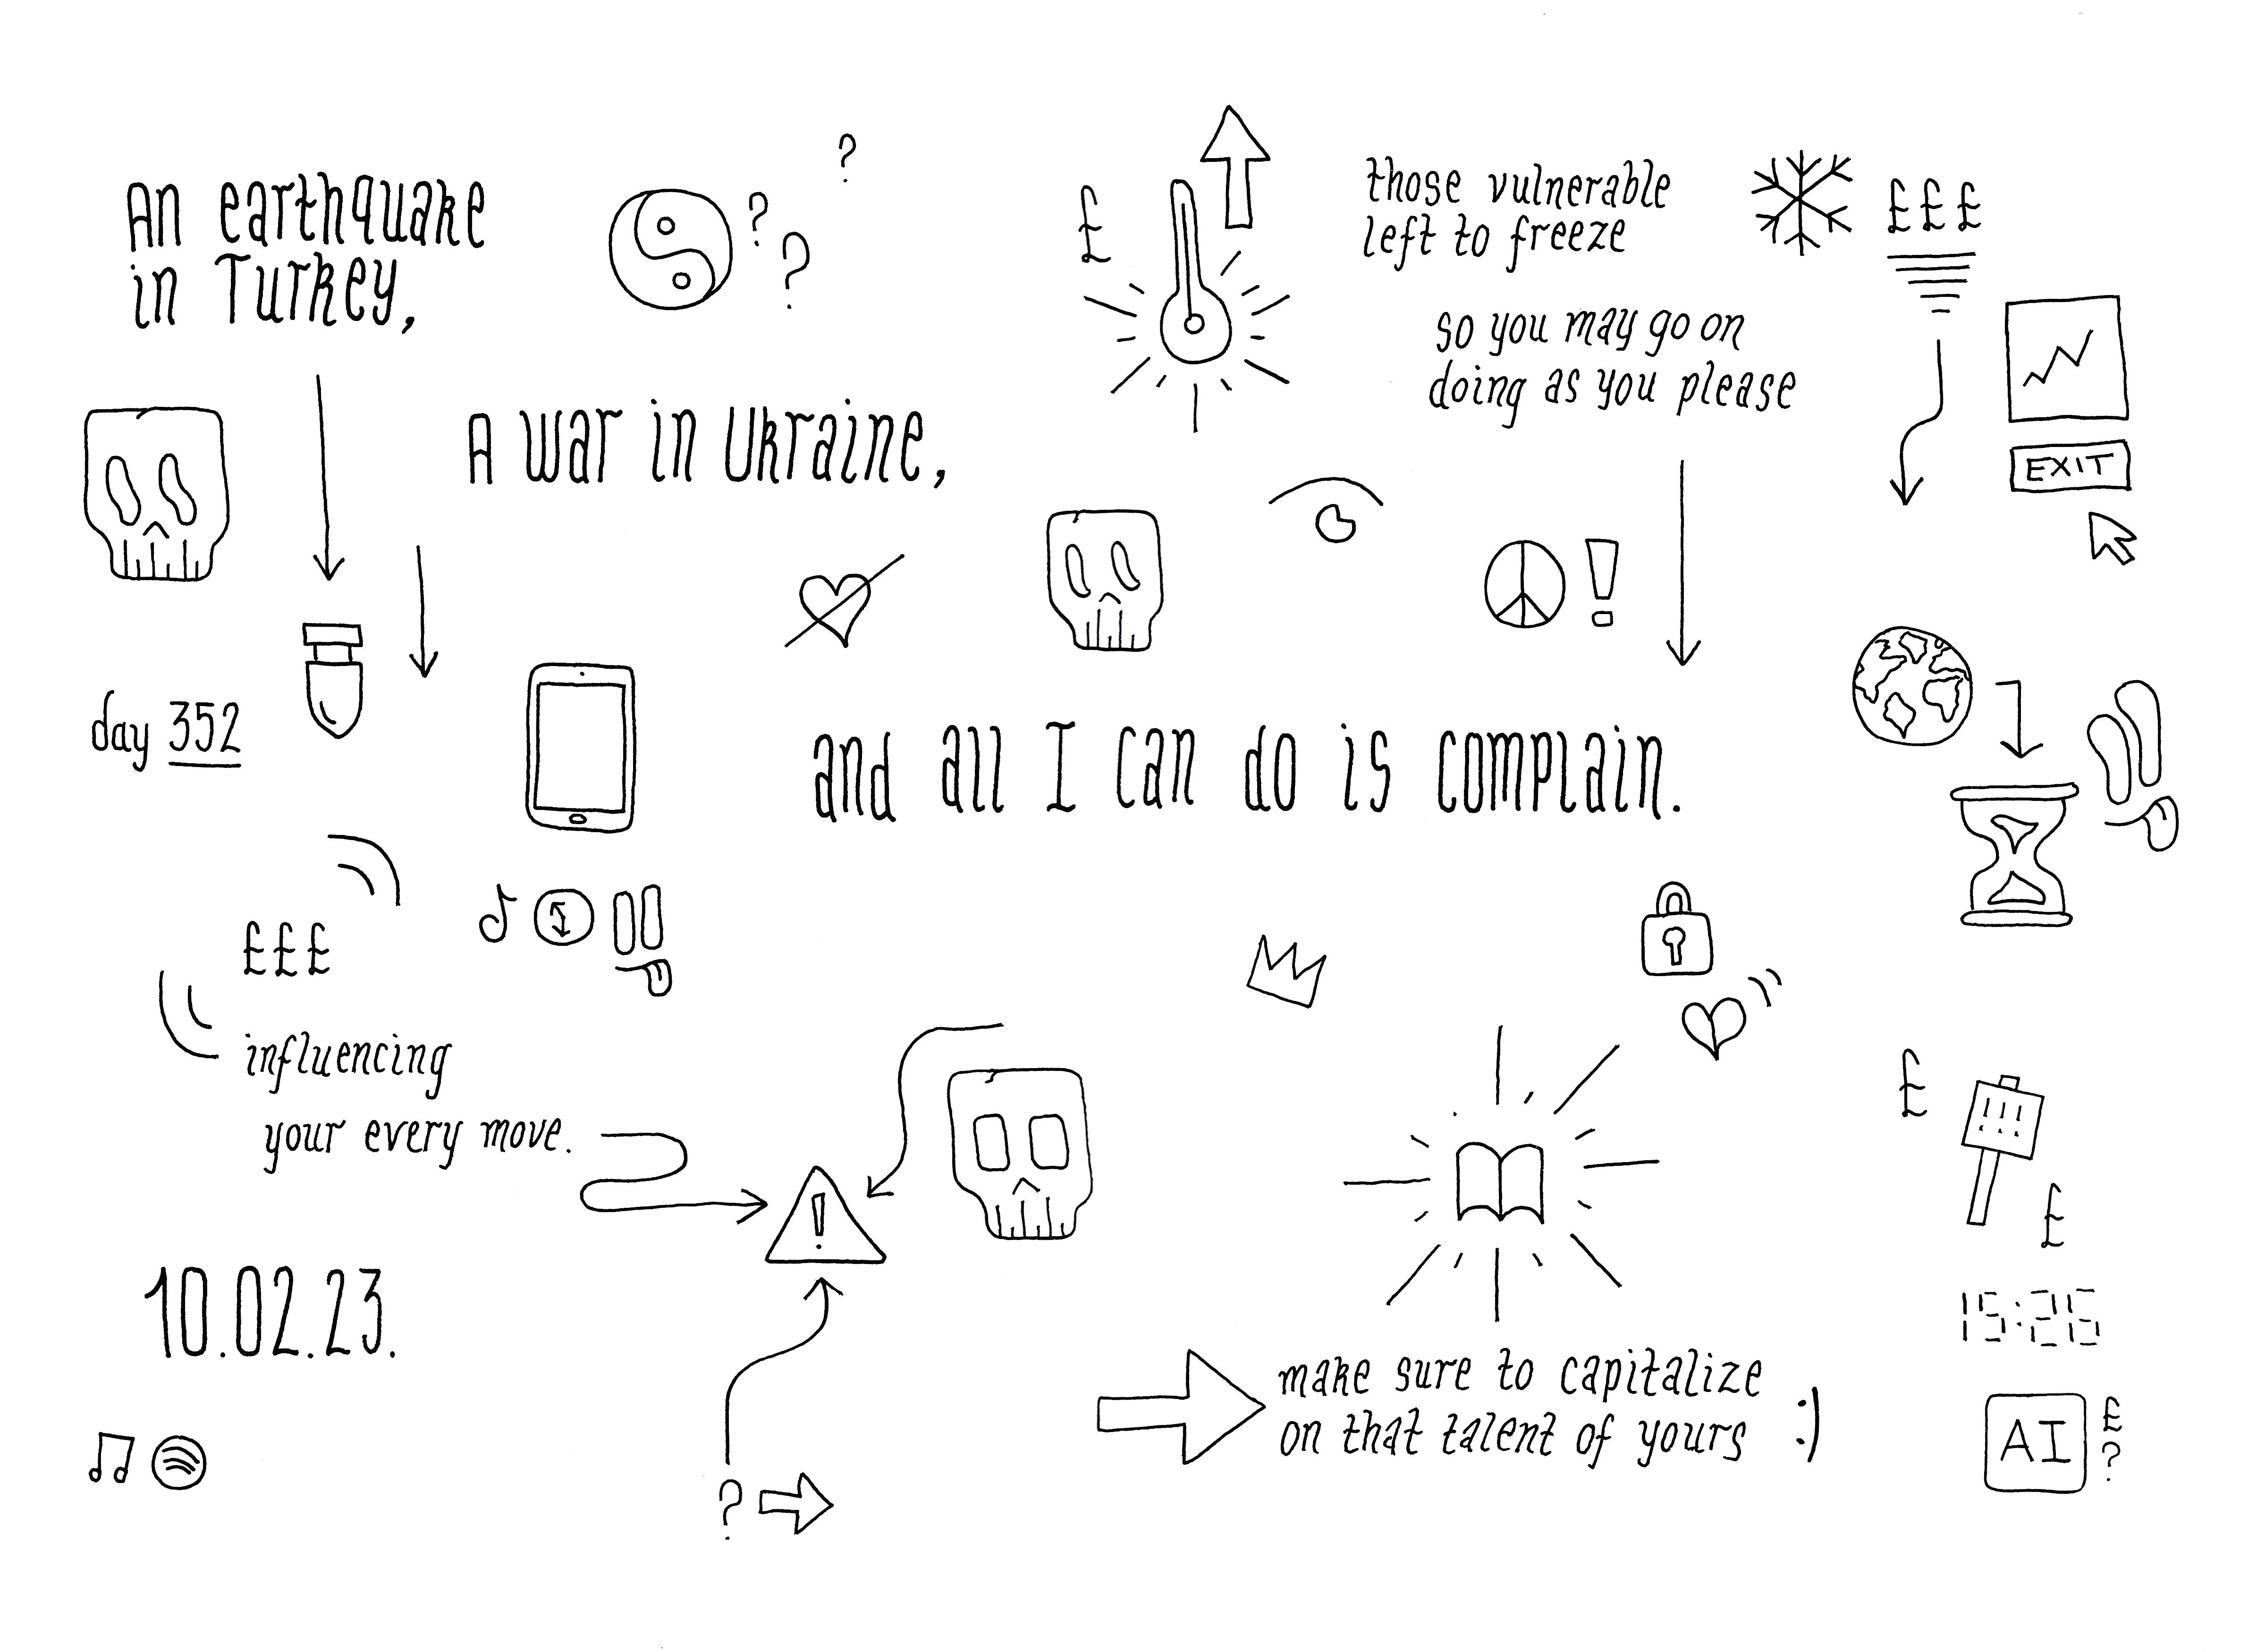 An earthquake
in Turkey,
? ? ?
£
those vulnerable
left to freeze
£££
so you may go on
doing as you please
A war in Ukraine,
EXIT
!
day 352
and all I can do is complain.
£££
influencing
your every move.
!
£
£
10.02.23.
15:26
make sure to capitalize
on that talent of yours :)
AI
£
?
?